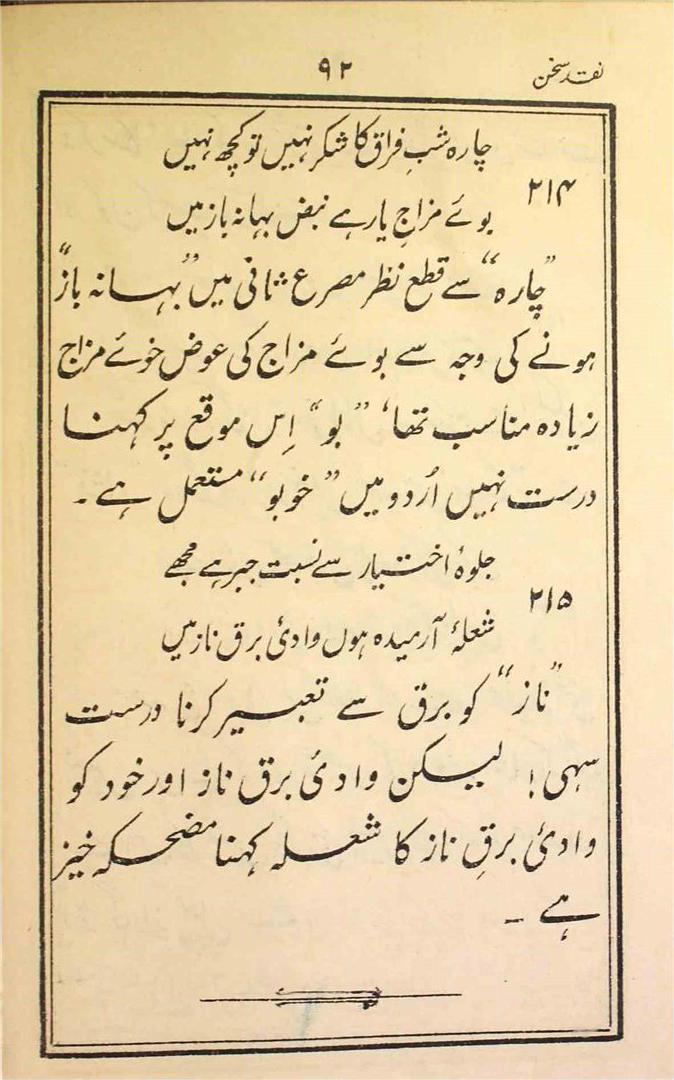 نقد سخن
۹۲
چارہ شبِ فراق کا شکر نہیں تو کچھ نہیں
۲۱۴
بوئے مزاجِ یار ہے نبض بہانہ باز میں
”چارہ“ سے قطع نظر مصرع ثانی میں ”بہانہ باز“
ہونے کی وجہ سے بوئے مزاج کی عوض خوئے مزاج
زیادہ مناسب تھا، ”بو“ اِس موقع پر کہنا
درست نہیں اُردو میں ”خوبو“ مستعمل ہے۔
جلوۂ اختیار سے نسبت جبر ہے مجھے
۲۱۵
شعلۂ آرمیدہ ہوں وادیٔ برق ناز میں
”ناز“ کو برق سے تعبیر کرنا درست
سہی! لیکن وادیٔ برق ناز اور خود کو
وادیٔ برقِ ناز کا شعلہ کہنا مضحکہ خیز
ہے۔